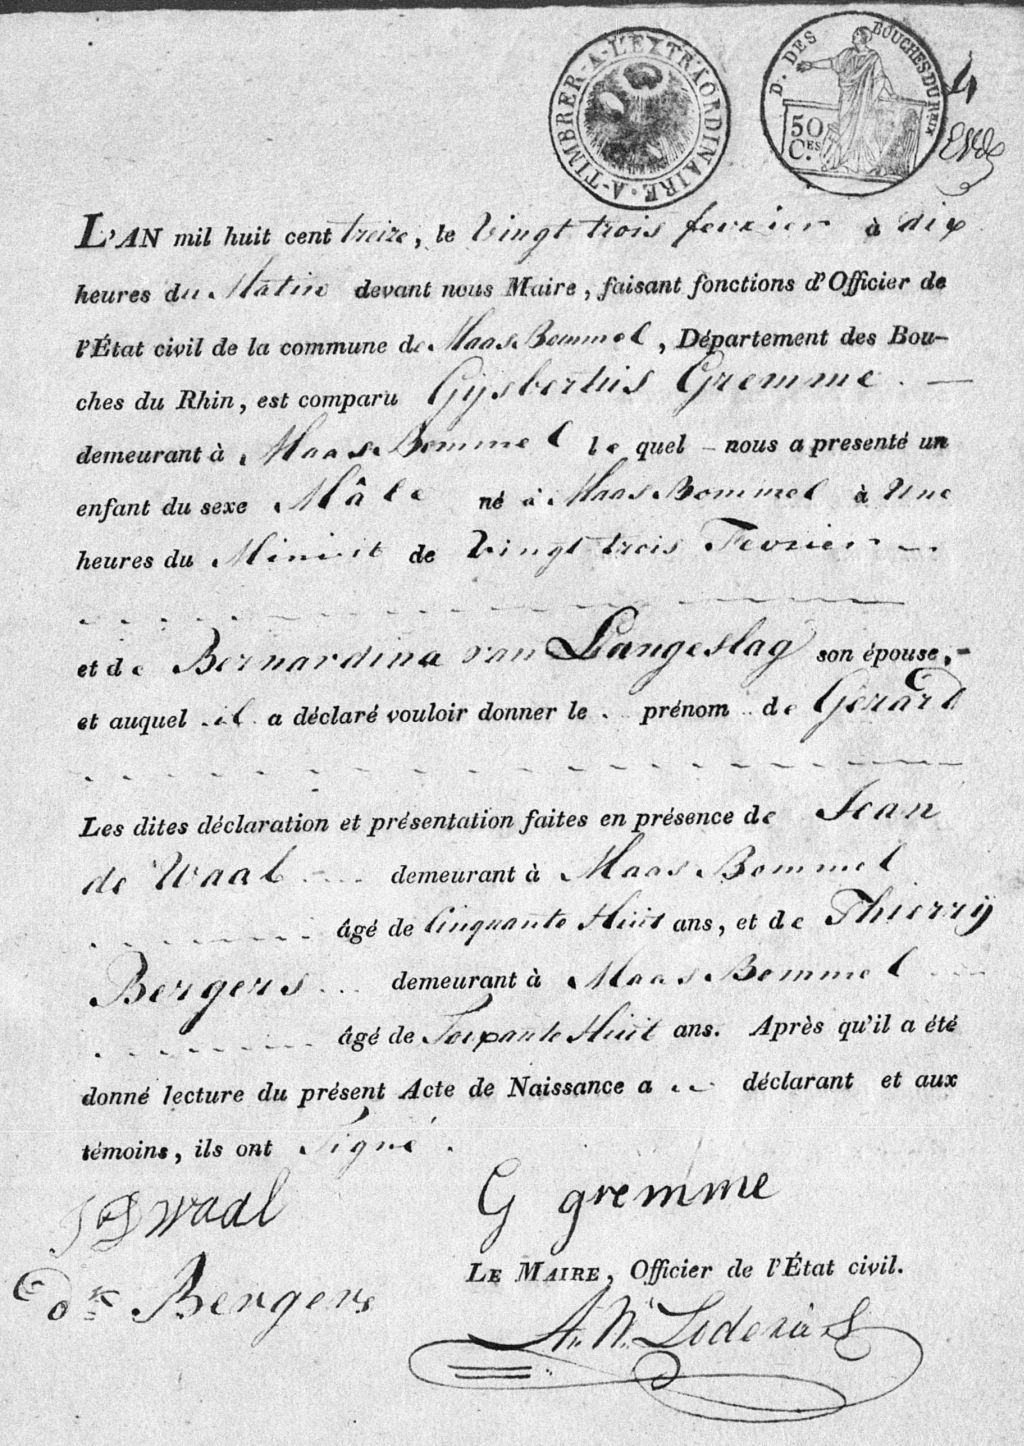 A-TIMBRER-A-L'EXTRAORDINAIRE
D. DES BOUCHES DU RHIN
50 C.ES
L'AN mil huit cent treize, le Vingt trois fevrier à dix
heures du Matin devant nous Maire, faisant fonctions d'Officier de
l'État civil de la commune de Maas Bommel, Département des Bou-
ches du Rhin, est comparu Gijsbertus Gremme. —
demeurant à Maas Bommel le quel - nous a presenté un
enfant du sexe Mâle né à Maas Bommel à Une
heures du Minuit de Vingt trois Fevrier
et de Bernardina van Langeslag son épouse, -
et auquel il a déclaré vouloir donner le prénom de Gerard
Les dites déclaration et présentation faites en présence de Jean
de Waal demeurant à Maas Bommel
âgé de Cinquante Huit ans, et de Thierrij
Bergers demeurant à Maas Bommel
âgé de Soixante Huit ans. Après qu'il a été
donné lecture du présent Acte de Naissance a déclarant et aux
témoins, ils ont Signé.
J D Waal
G gremme
LE MAIRE, Officier de l'État civil.
Bergers